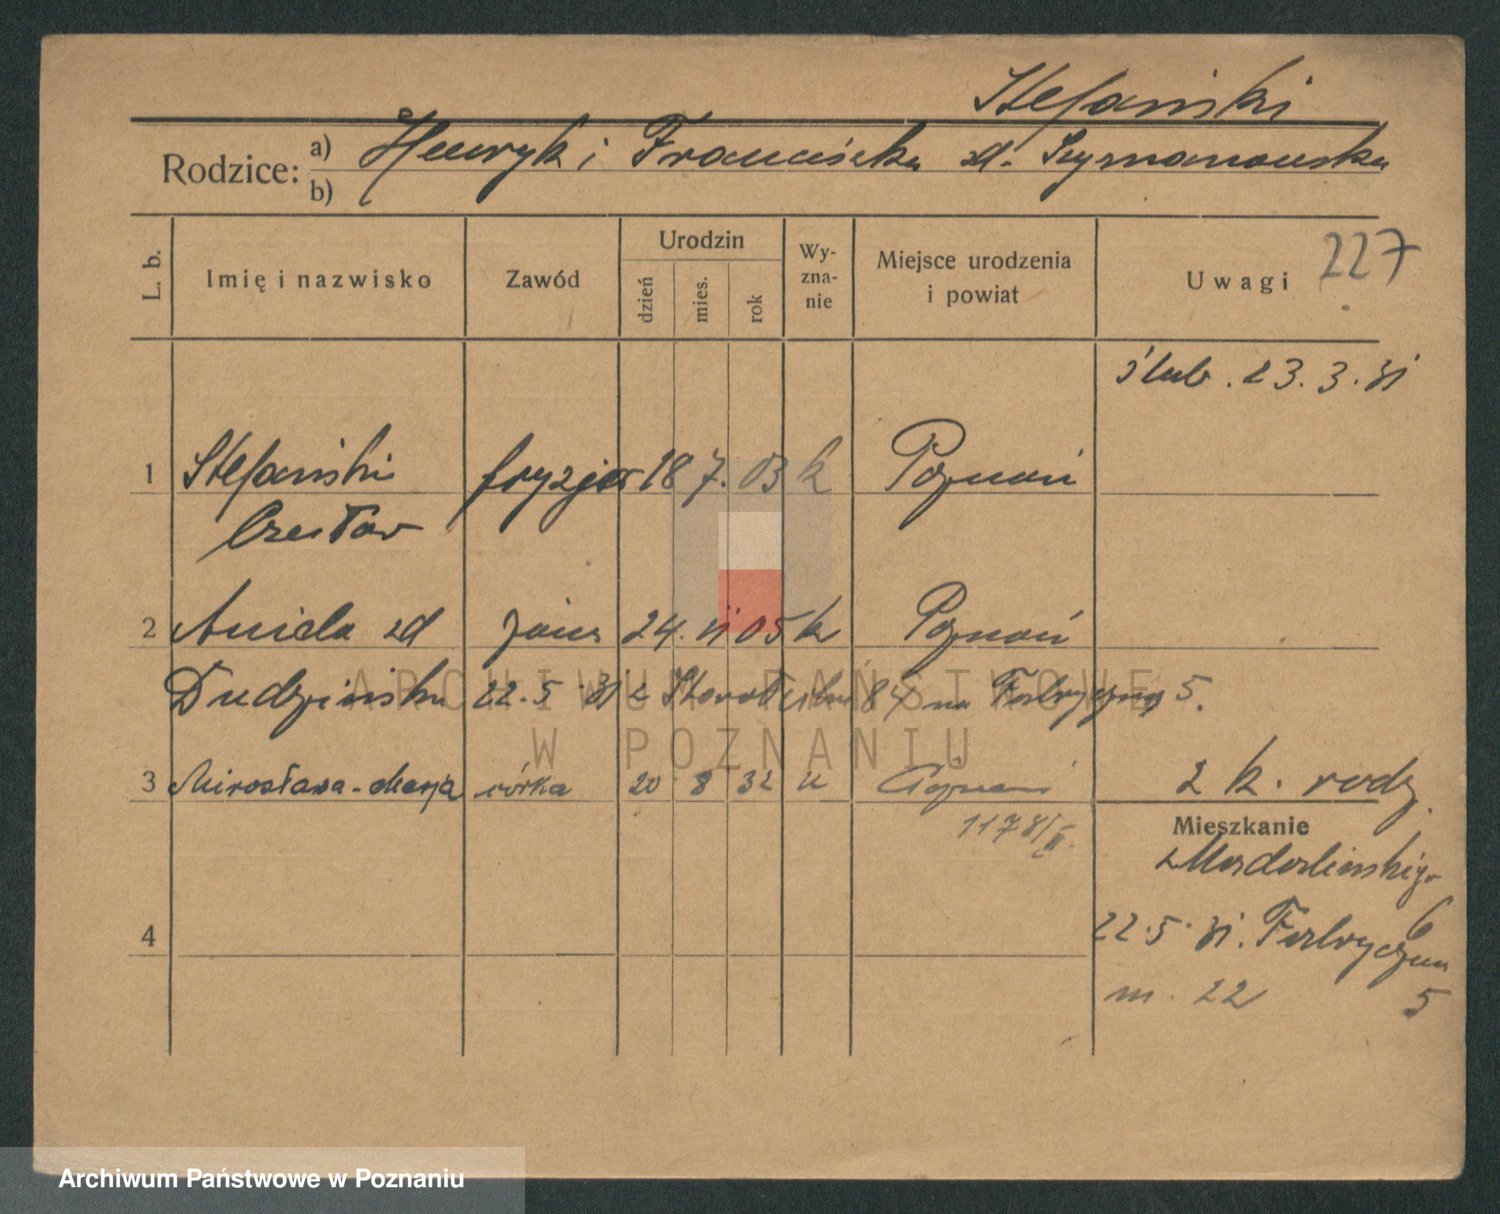 Stefański
Rodzice: a) Henryk i Franciszka zd. Szymanowska
b)
L. b. Imię i nazwisko Zawód Urodzin dzień mies. rok Wyznanie Miejsce urodzenia i powiat Uwagi 227
ślub. 23.3.31
1 Stefański fryzjer 18 7. 03 k Poznań
Czesław
2 Aniela zd żona 24. 05 k Poznań
Dudzińska 22.5.31 z 87 na Fabryczną 5.
3 Mirosława-Marja córka 20 8 32 Poznań 2 k. rodz.
1178/II.
Mieszkanie
6
4 22.5.31. Fabryczna
m. 22 5
ARCHIWUM PAŃSTWOWE
W POZNANIU
Archiwum Państwowe w Poznaniu